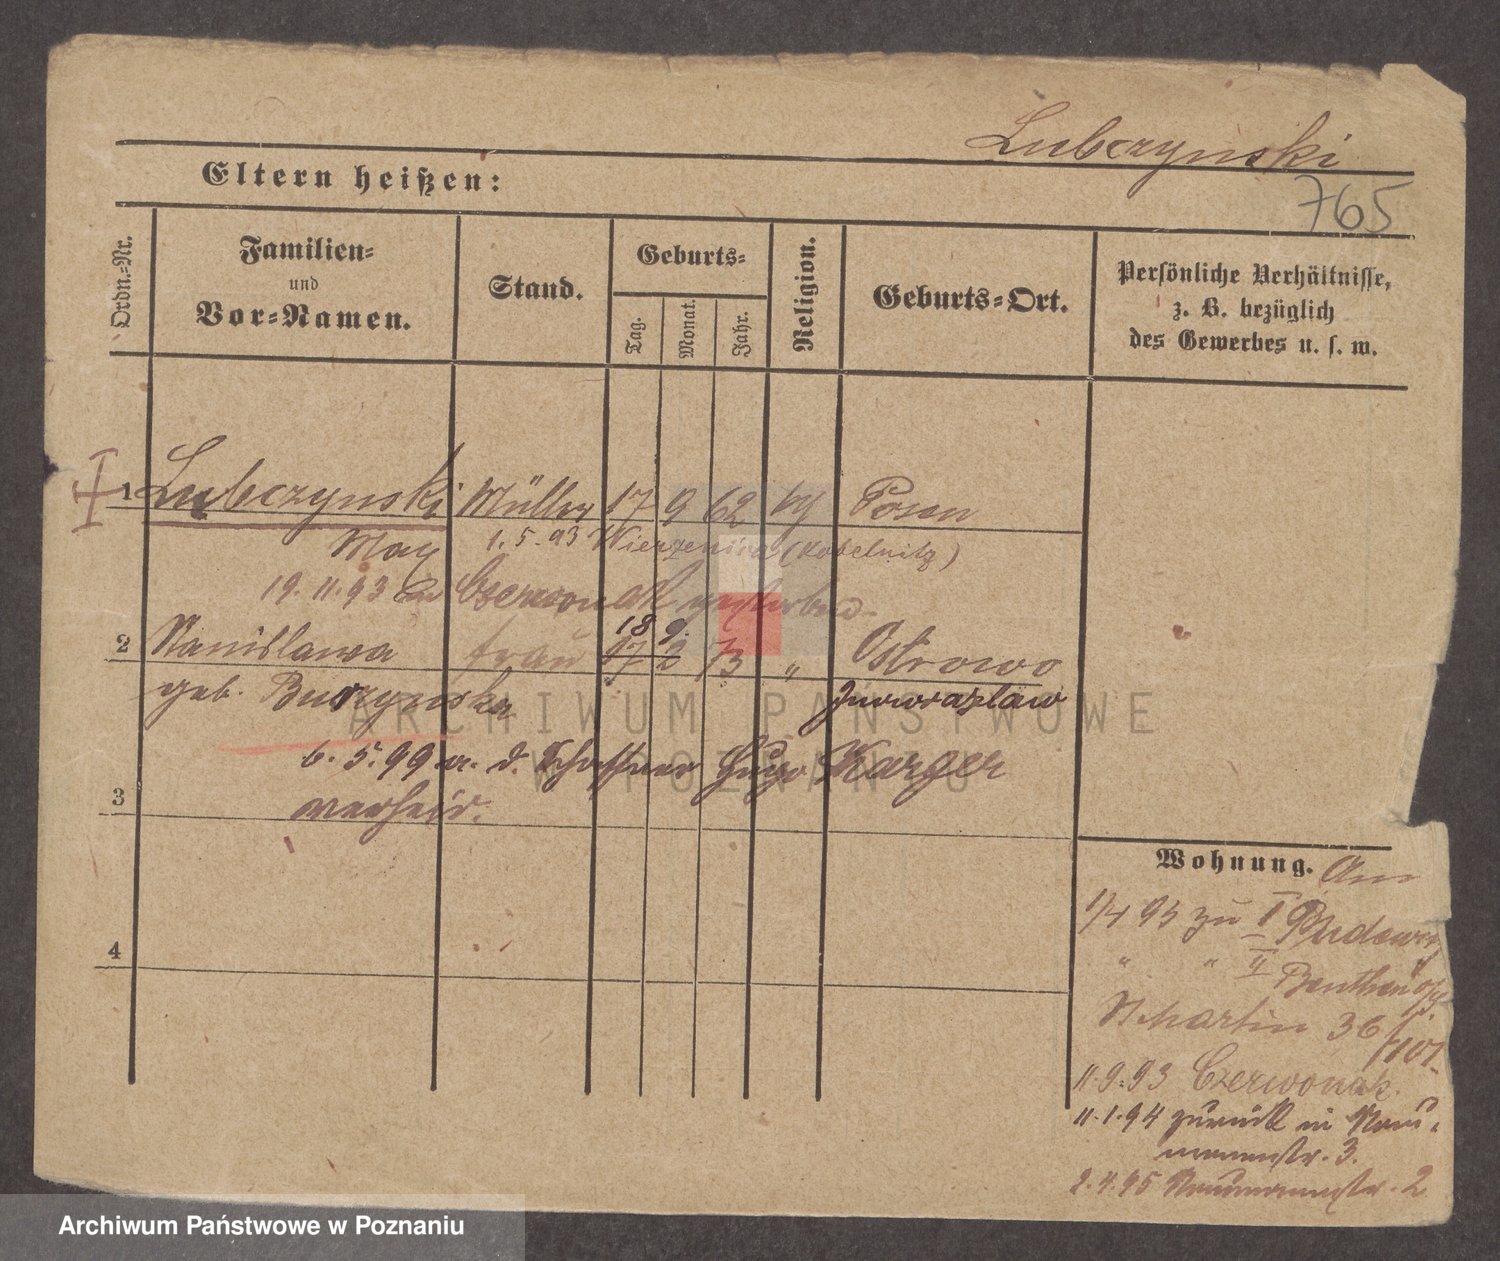 Lubczynski
Eltern heißen:
765
Ordn.-Nr.
Familien-
und
Vor-Namen.
Stand.
Geburts-
Tag.
Monat.
Jahr.
Religion.
Geburts-Ort.
Persönliche Verhältnisse,
z. B. bezüglich
des Gewerbes u. s. w.
1 Lubczynski Müller 17 9 62 Posen
Max 1.5.93 (Kobelnitz)
19.11.93 in Czerwonak gestorben.
18 9.
2 Stanislawa Frau 17 2 73 " Ostrowo
geb. Inowrazlaw
ARCHIWUM PAŃSTWOWE
W POZNANIU
6.5.99 m. d. Schaffner Hugo Karger
3 verheir.
Wohnung. Am
1/4 93 zu I
" " II
St. Martin 36
11.9.93 Czerwonak.
11.1.94 zurück in Nau-
mannstr. 3.
2.4.95 Naumannstr. 2
4
Archiwum Państwowe w Poznaniu